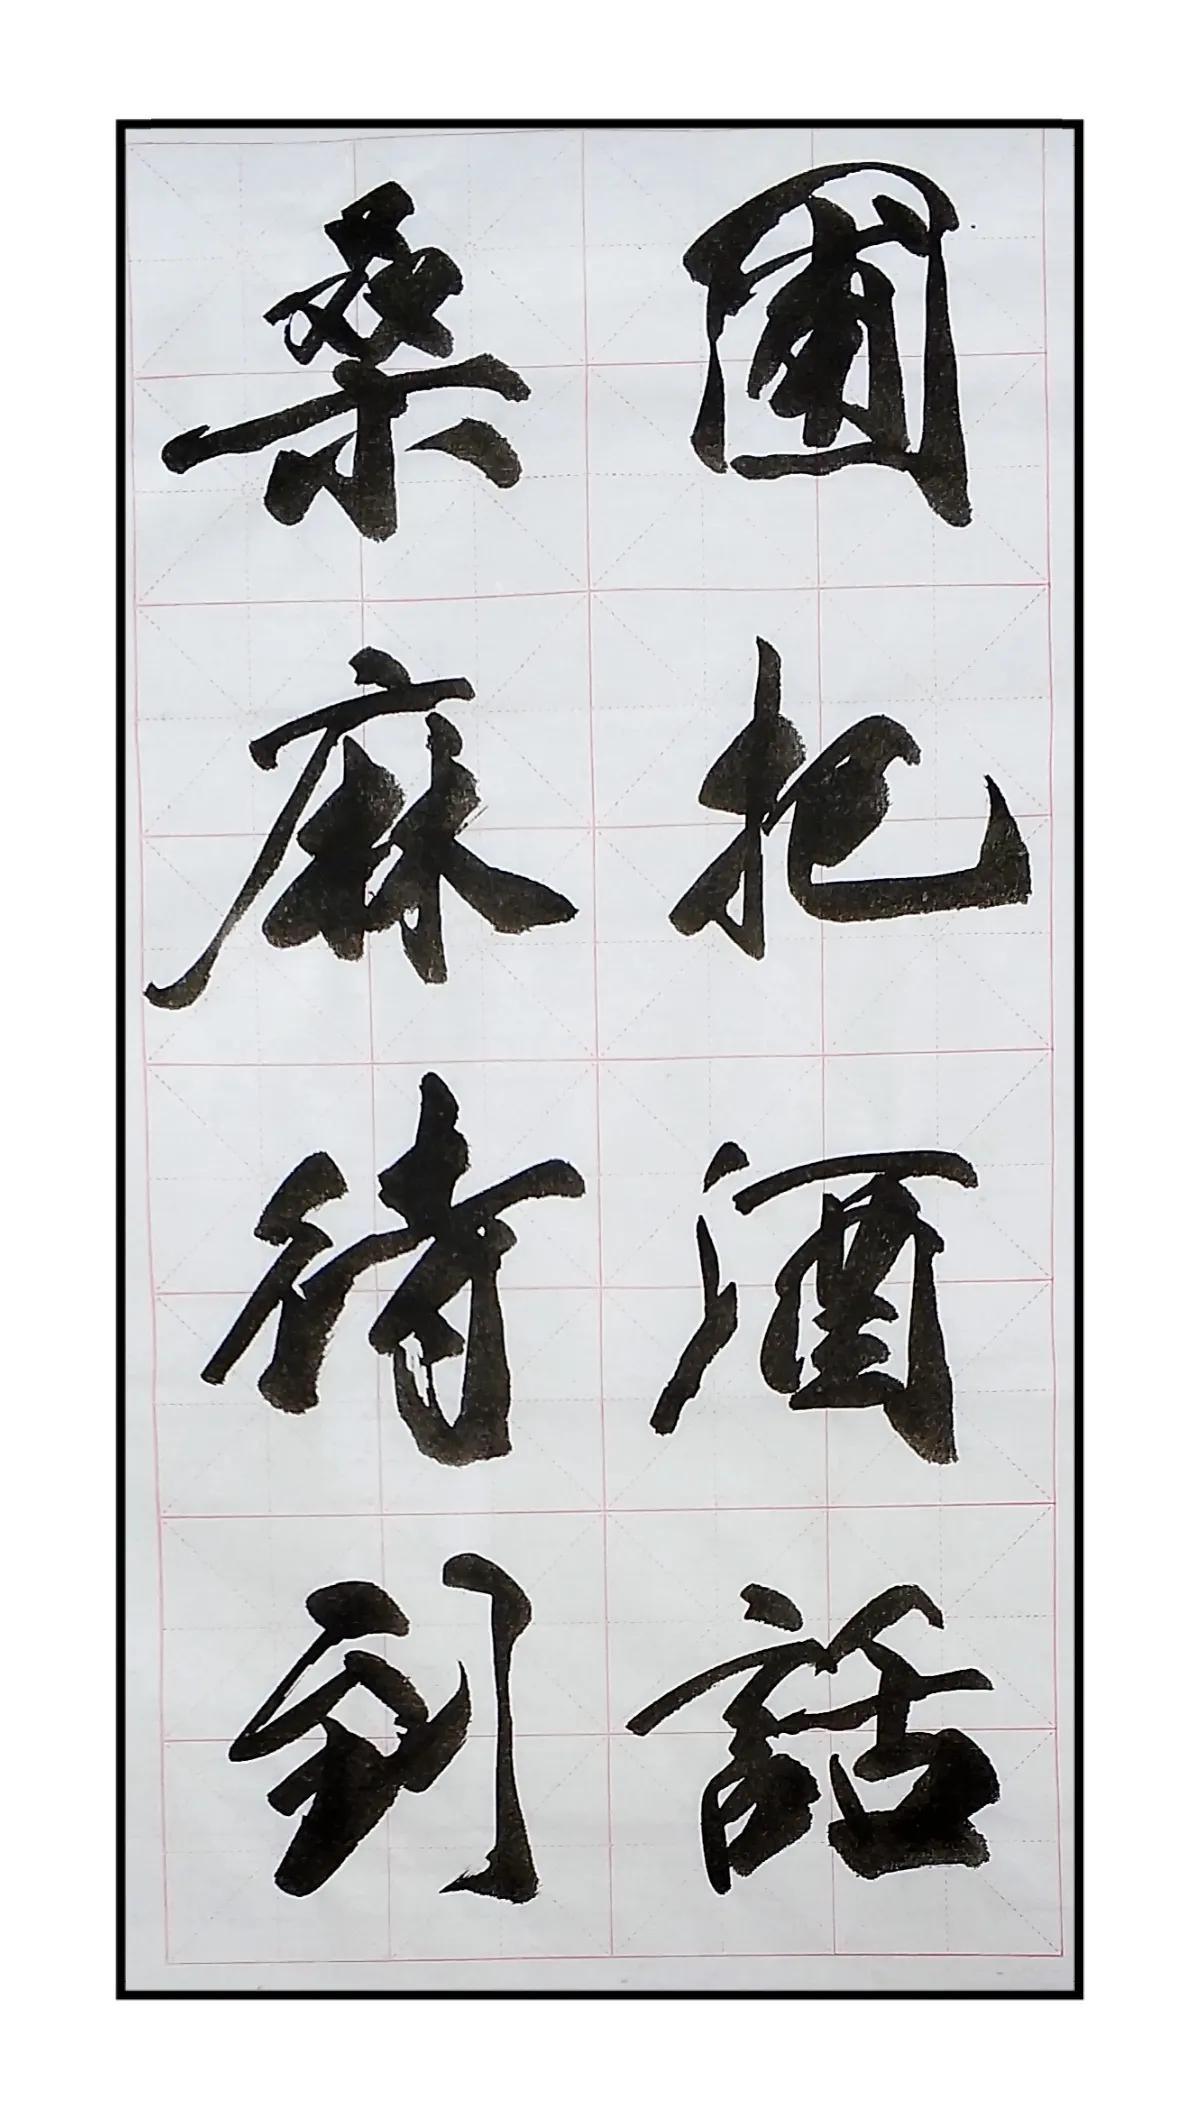 圃把酒話
桑麻待到